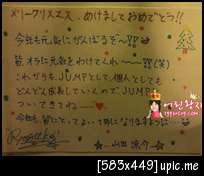 メリークリスマス、あけましておめでとう!!
今年も元気にがんばるぞ〜!?!?
皆、オラに元気をわけてくれ〜!!(笑)
これからも、JUMPとして、個人としても
どんどん成長していくので JUMPに
ついてきてね
今年も皆にとっていい年になりますように
Ryosuke!
山田涼介
[583x449] upic.me